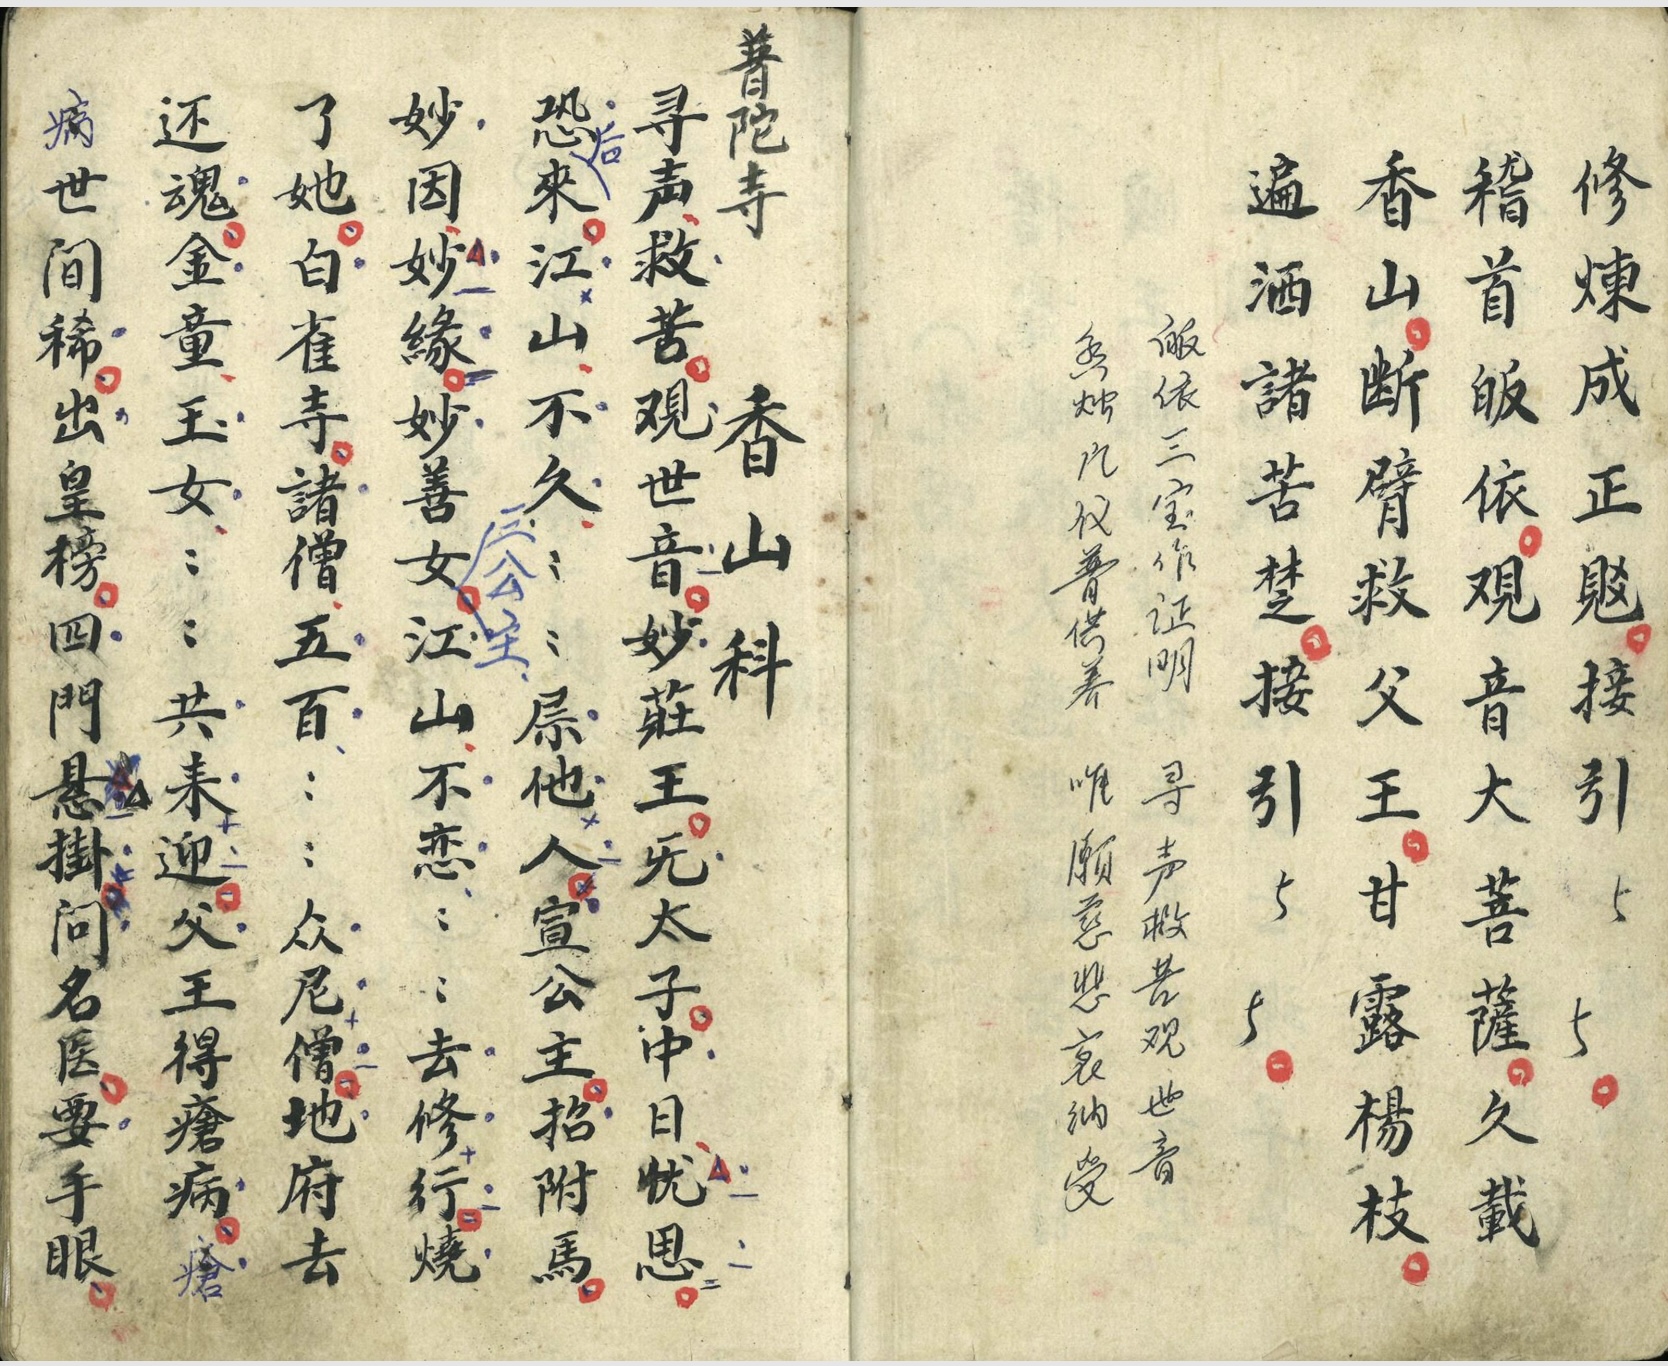 修煉成正覐接引ㄣㄣ
稽首皈依观音大菩薩久載
香山断臂救父王甘露楊枝
遍洒諸苦楚接引ㄣㄣ
皈依三宝作证明 寻声救苦观世音
香烛凡仪普供养 唯願慈悲哀纳受
普陀寺
香山科
寻声救苦观世音妙莊王旡太子中日忧思
恐來江山不久：：屌他人宣公主招附馬
后
妙因妙緣妙善女江山不恋：：去修行燒
三公主
了她白雀寺諸僧五百：：众尼僧地府去
还魂金童玉女：：共来迎父王得瘡病
瘡
病世间稀出皇榜四門悬掛问名医要手眼